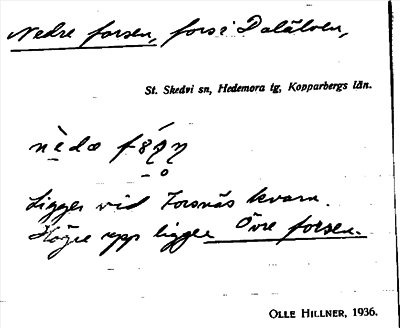 Nedre forsen, fors i Dalälven,
St. Skedvi sn, Hedemora tg, Kopparbergs län.
Ligger vid Forsnäs kvarn.
Högre upp ligger Övre forsen.
OLLE HILLNER, 1936.